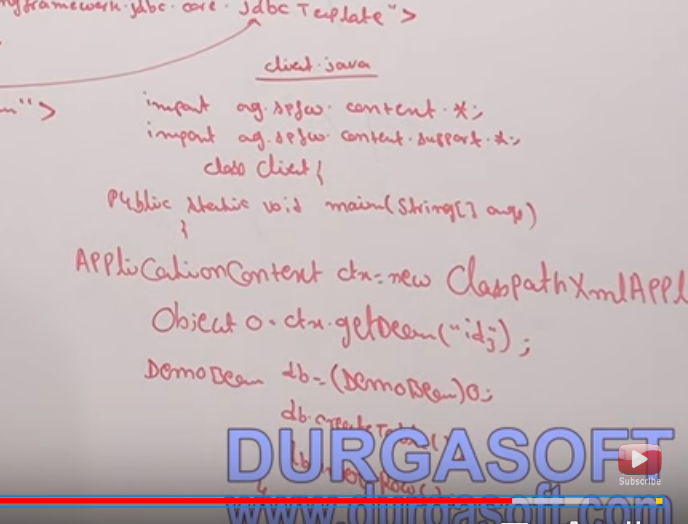 ngframework.jdbc.core.jdbcTemplate">
">
client.java
import og.spfw.context.*;
import og.spfw.context.support.*;
class Client{
Public static void main(String[] args)
{
APPliCationContext ctx=new ClasspathXmlAPPl
Object o=ctx.getBean("id");
DemoBean db=(DemoBean)o;
db.createTable()
DURGASOFT
Subscribe
www.durgasoft.com